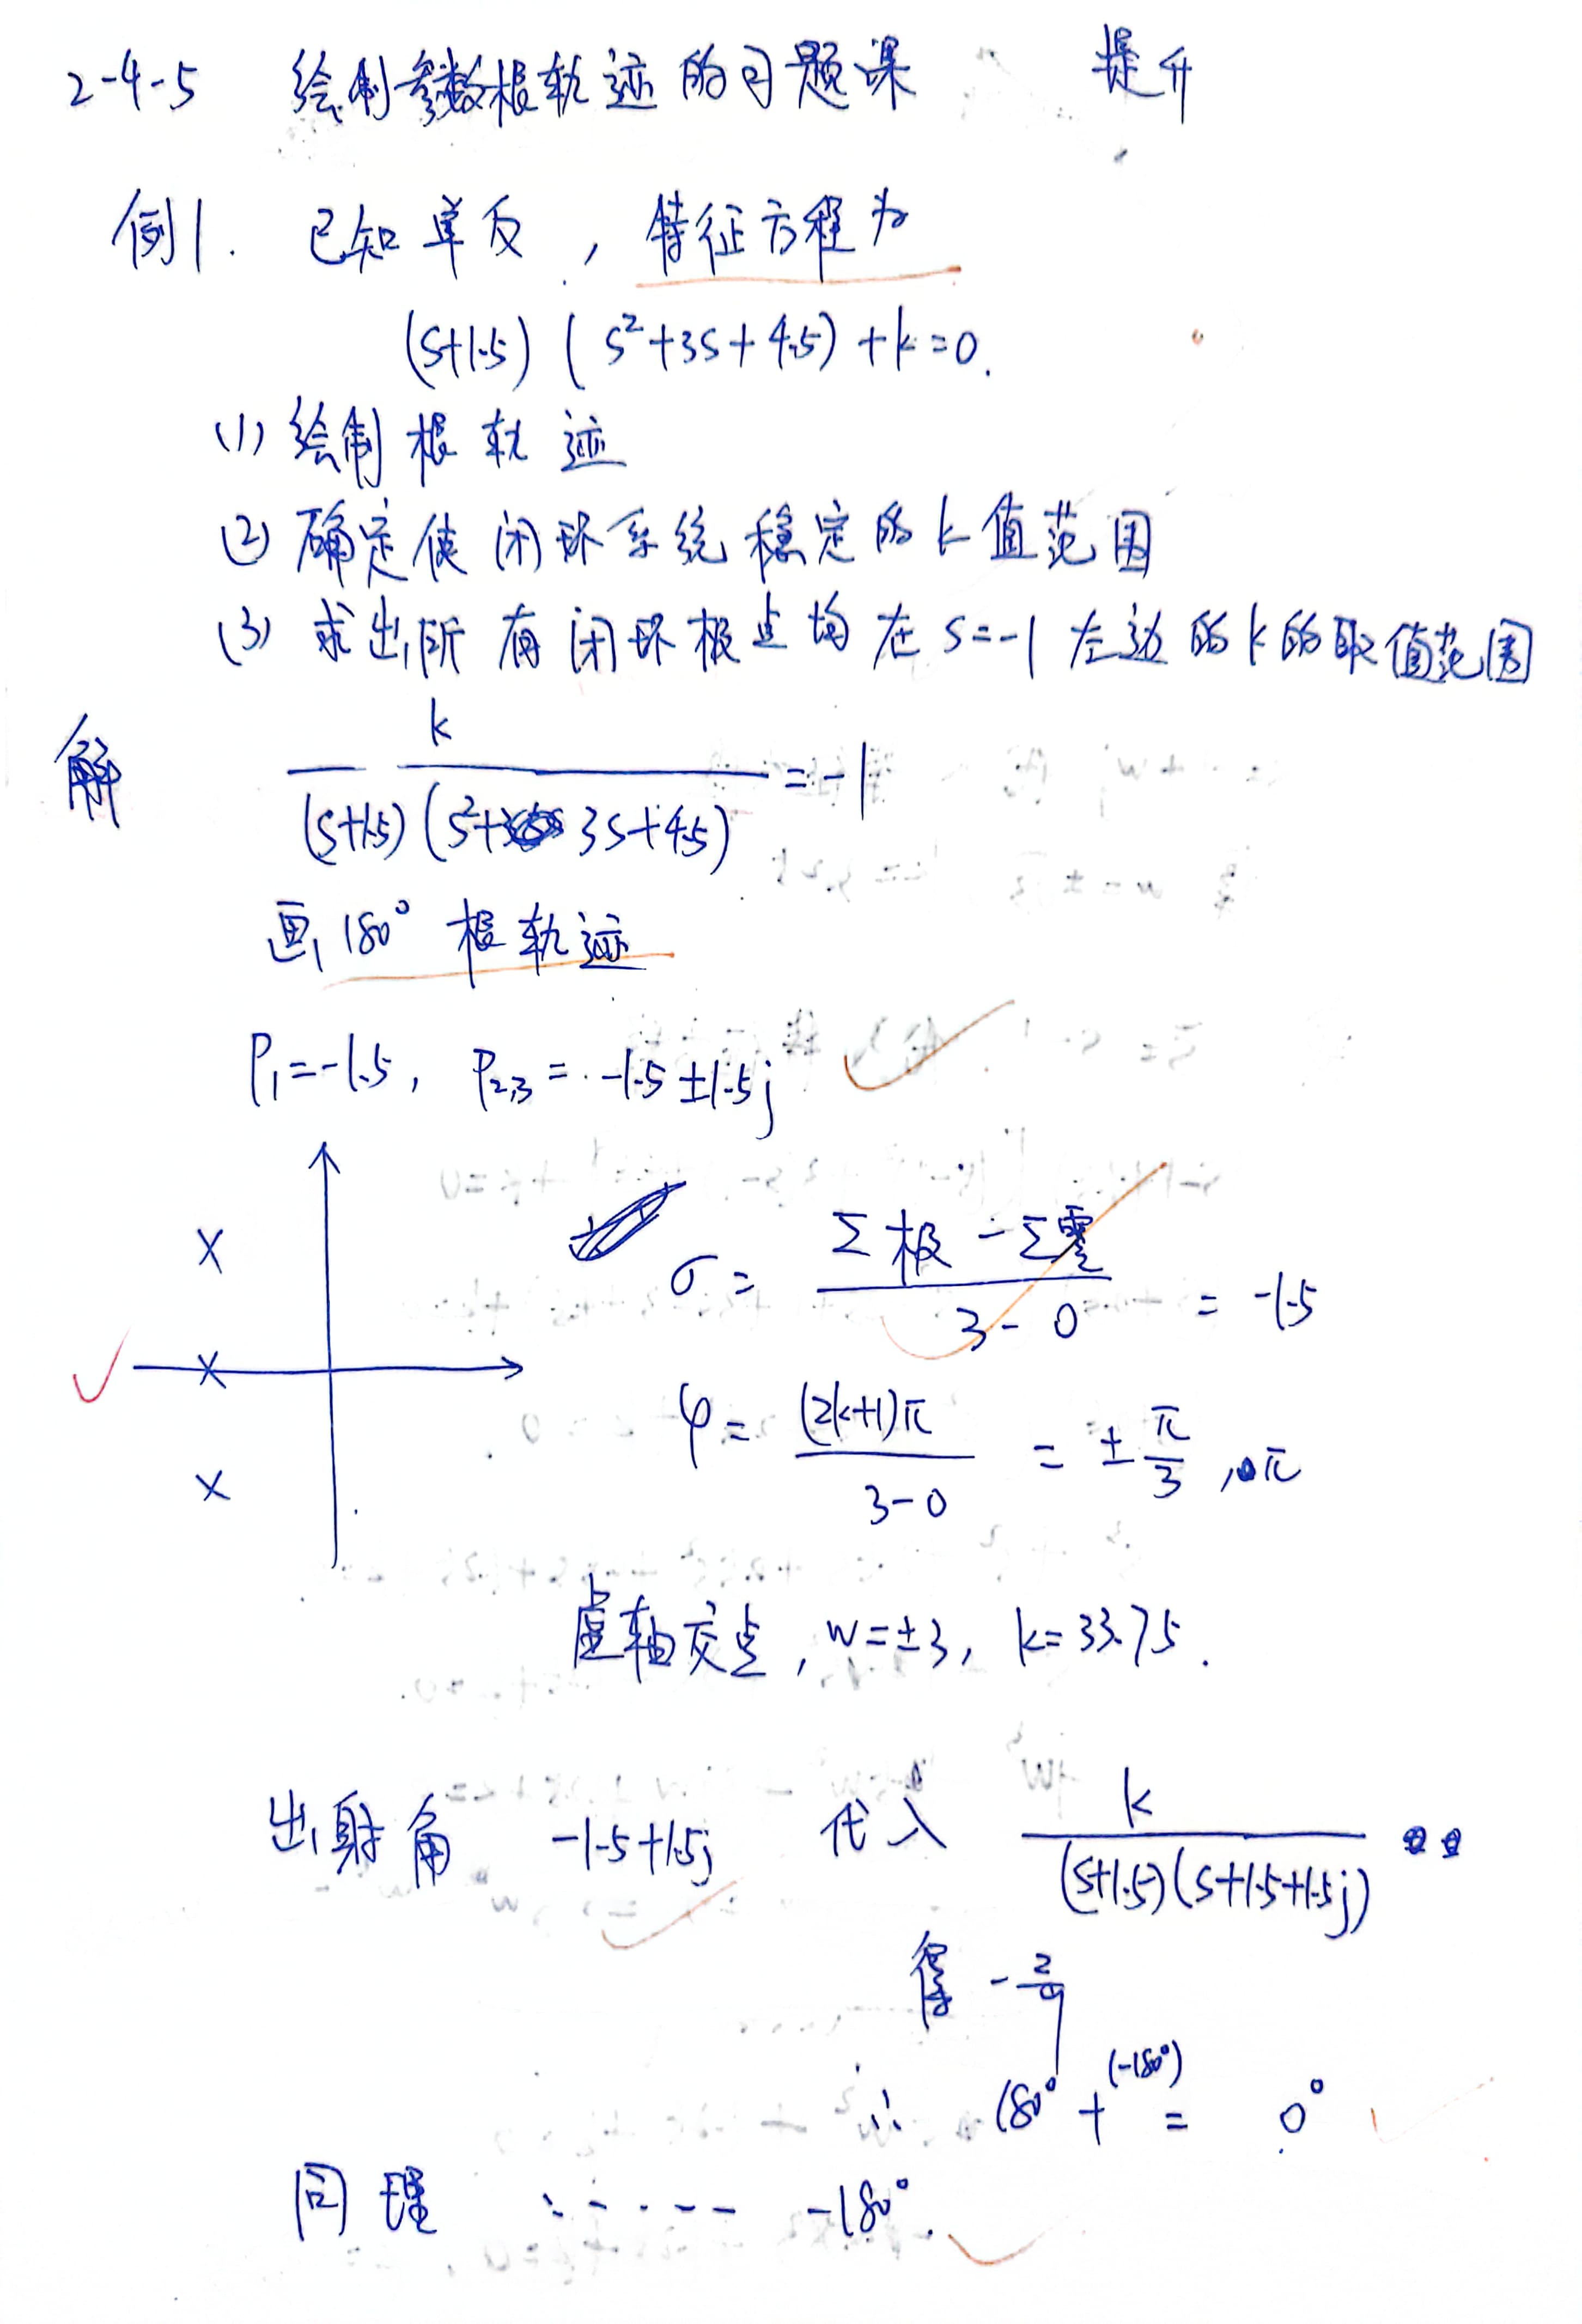 2-4-5 绘制参数根轨迹的习题课 提升
例1. 已知单反, 特征方程为
(s+1.5) (s²+3s+4.5) +k=0.
(1) 绘制根轨迹
(2) 确定使闭环系统稳定的k值范围
(3) 求出所有闭环极点均在s=-1左边的k的取值范围
解 k/((s+1.5)(s²+3s+4.5)) = -1
画180°根轨迹
P₁=-1.5, P₂,₃=-1.5±1.5j
σ = (Σ极-Σ零)/(3-0) = -1.5
φ = (2k+1)π/(3-0) = ±π/3, π
虚轴交点, w=±3, k=33.75.
出射角 -1.5+1.5j 代入 k/((s+1.5)(s+1.5+1.5j))
得 -2/9
∴ 180°+(-180°) = 0°
同理 ...... -180°.